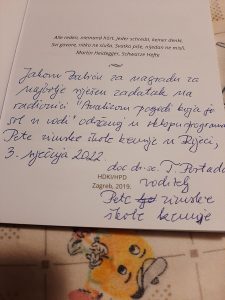 Alle reden, niemand hört. Jeder schreibt, keiner denkt.
Svi govore, nitko ne sluša. Svatko piše, nijedan ne misli.
Martin Heidegger, Schwarze Hefte
Jakovu Babiću za nagradu za
najbolje riješen zadatak na
radionici "Analizom pogodi koja je
sol u vodi" održanoj u sklopu programa
Pete zimske škole kemije u Rijeci,
3. siječnja 2022.
doc. dr. sc. T. Portada
HDKI/HPD
Zagreb, 2019.
voditelj
Pete zimske
škole kemije